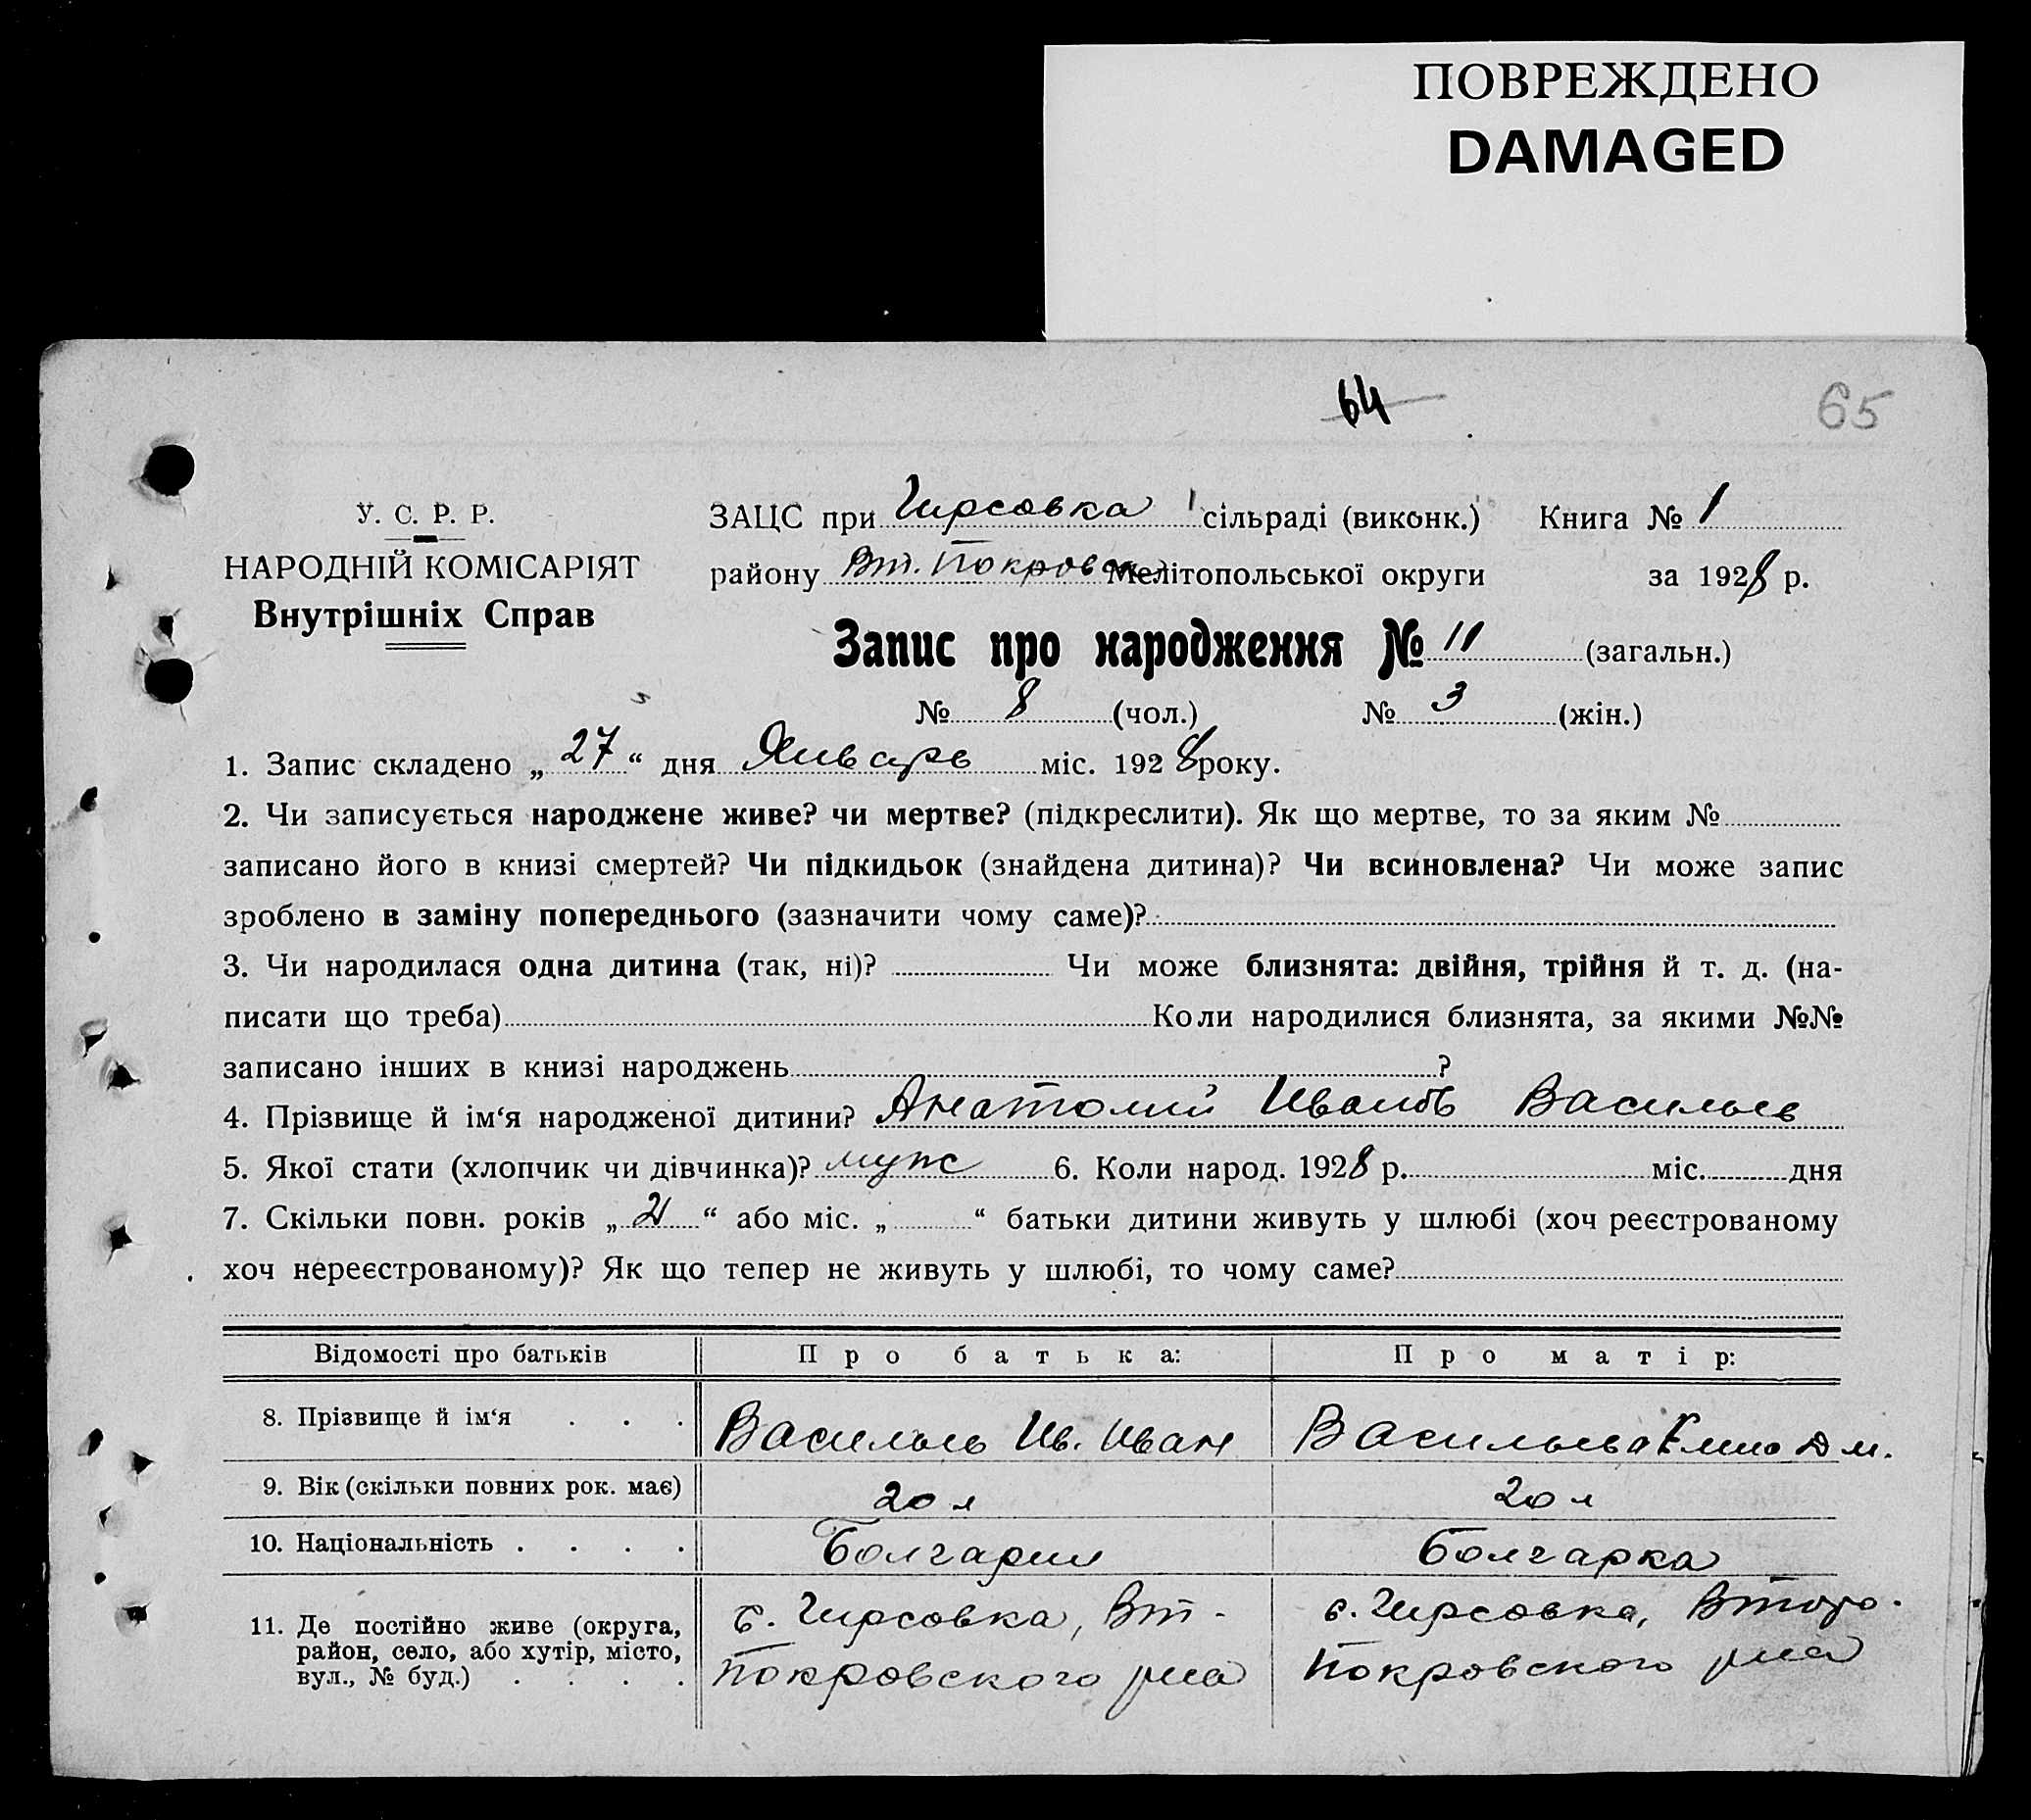 ПОВРЕЖДЕНО
DAMAGED
64
65
У. С. Р. Р.
НАРОДНІЙ КОМІСАРІЯТ
Внутрішніх Справ
ЗАЦС при Гирсовка сільраді (виконк.) Книга № 1
району Вт. Покровск Мелітопольської округи за 1928 р.
Запис про народження № 11 (загальн.)
№ 8 (чол.) № 3 (жін.)
1. Запис складено „ 27 “ дня Январь міс. 1928 року.
2. Чи записується народжене живе? чи мертве? (підкреслити). Як що мертве, то за яким №
записано його в книзі смертей? Чи підкидьок (знайдена дитина)? Чи всиновлена? Чи може запис
зроблено в заміну попереднього (зазначити чому саме)?
3. Чи народилася одна дитина (так, ні)? Чи може близнята: двійня, трійня й т. д. (на-
писати що треба) Коли народилися близнята, за якими №№
записано інших в книзі народжень ?
4. Прізвище й ім‘я народженої дитини? Анатолий Иванов Васильев
5. Якої стати (хлопчик чи дівчинка)? муж 6. Коли народ. 1928 р. міс. дня
7. Скільки повн. років „ “ або міс. „ “ батьки дитини живуть у шлюбі (хоч реєстрованому
хоч нереєстрованому)? Як що тепер не живуть у шлюбі, то чому саме?
Відомості про батьків Про батька: Про матір:
8. Прізвище й ім‘я . . . Васильев Ив. Иван Васильева Дм.
9. Вік (скільки повних рок. має) 20 л 20 л
10. Національність . . . . Болгарин Болгарка
11. Де постійно живе (округа, район, село, або хутір, місто, вул., № буд.) . . . .
с. Гирсовка, Вт-
Покровского р-на
с. Гирсовка, Второ-
Покровского р-на